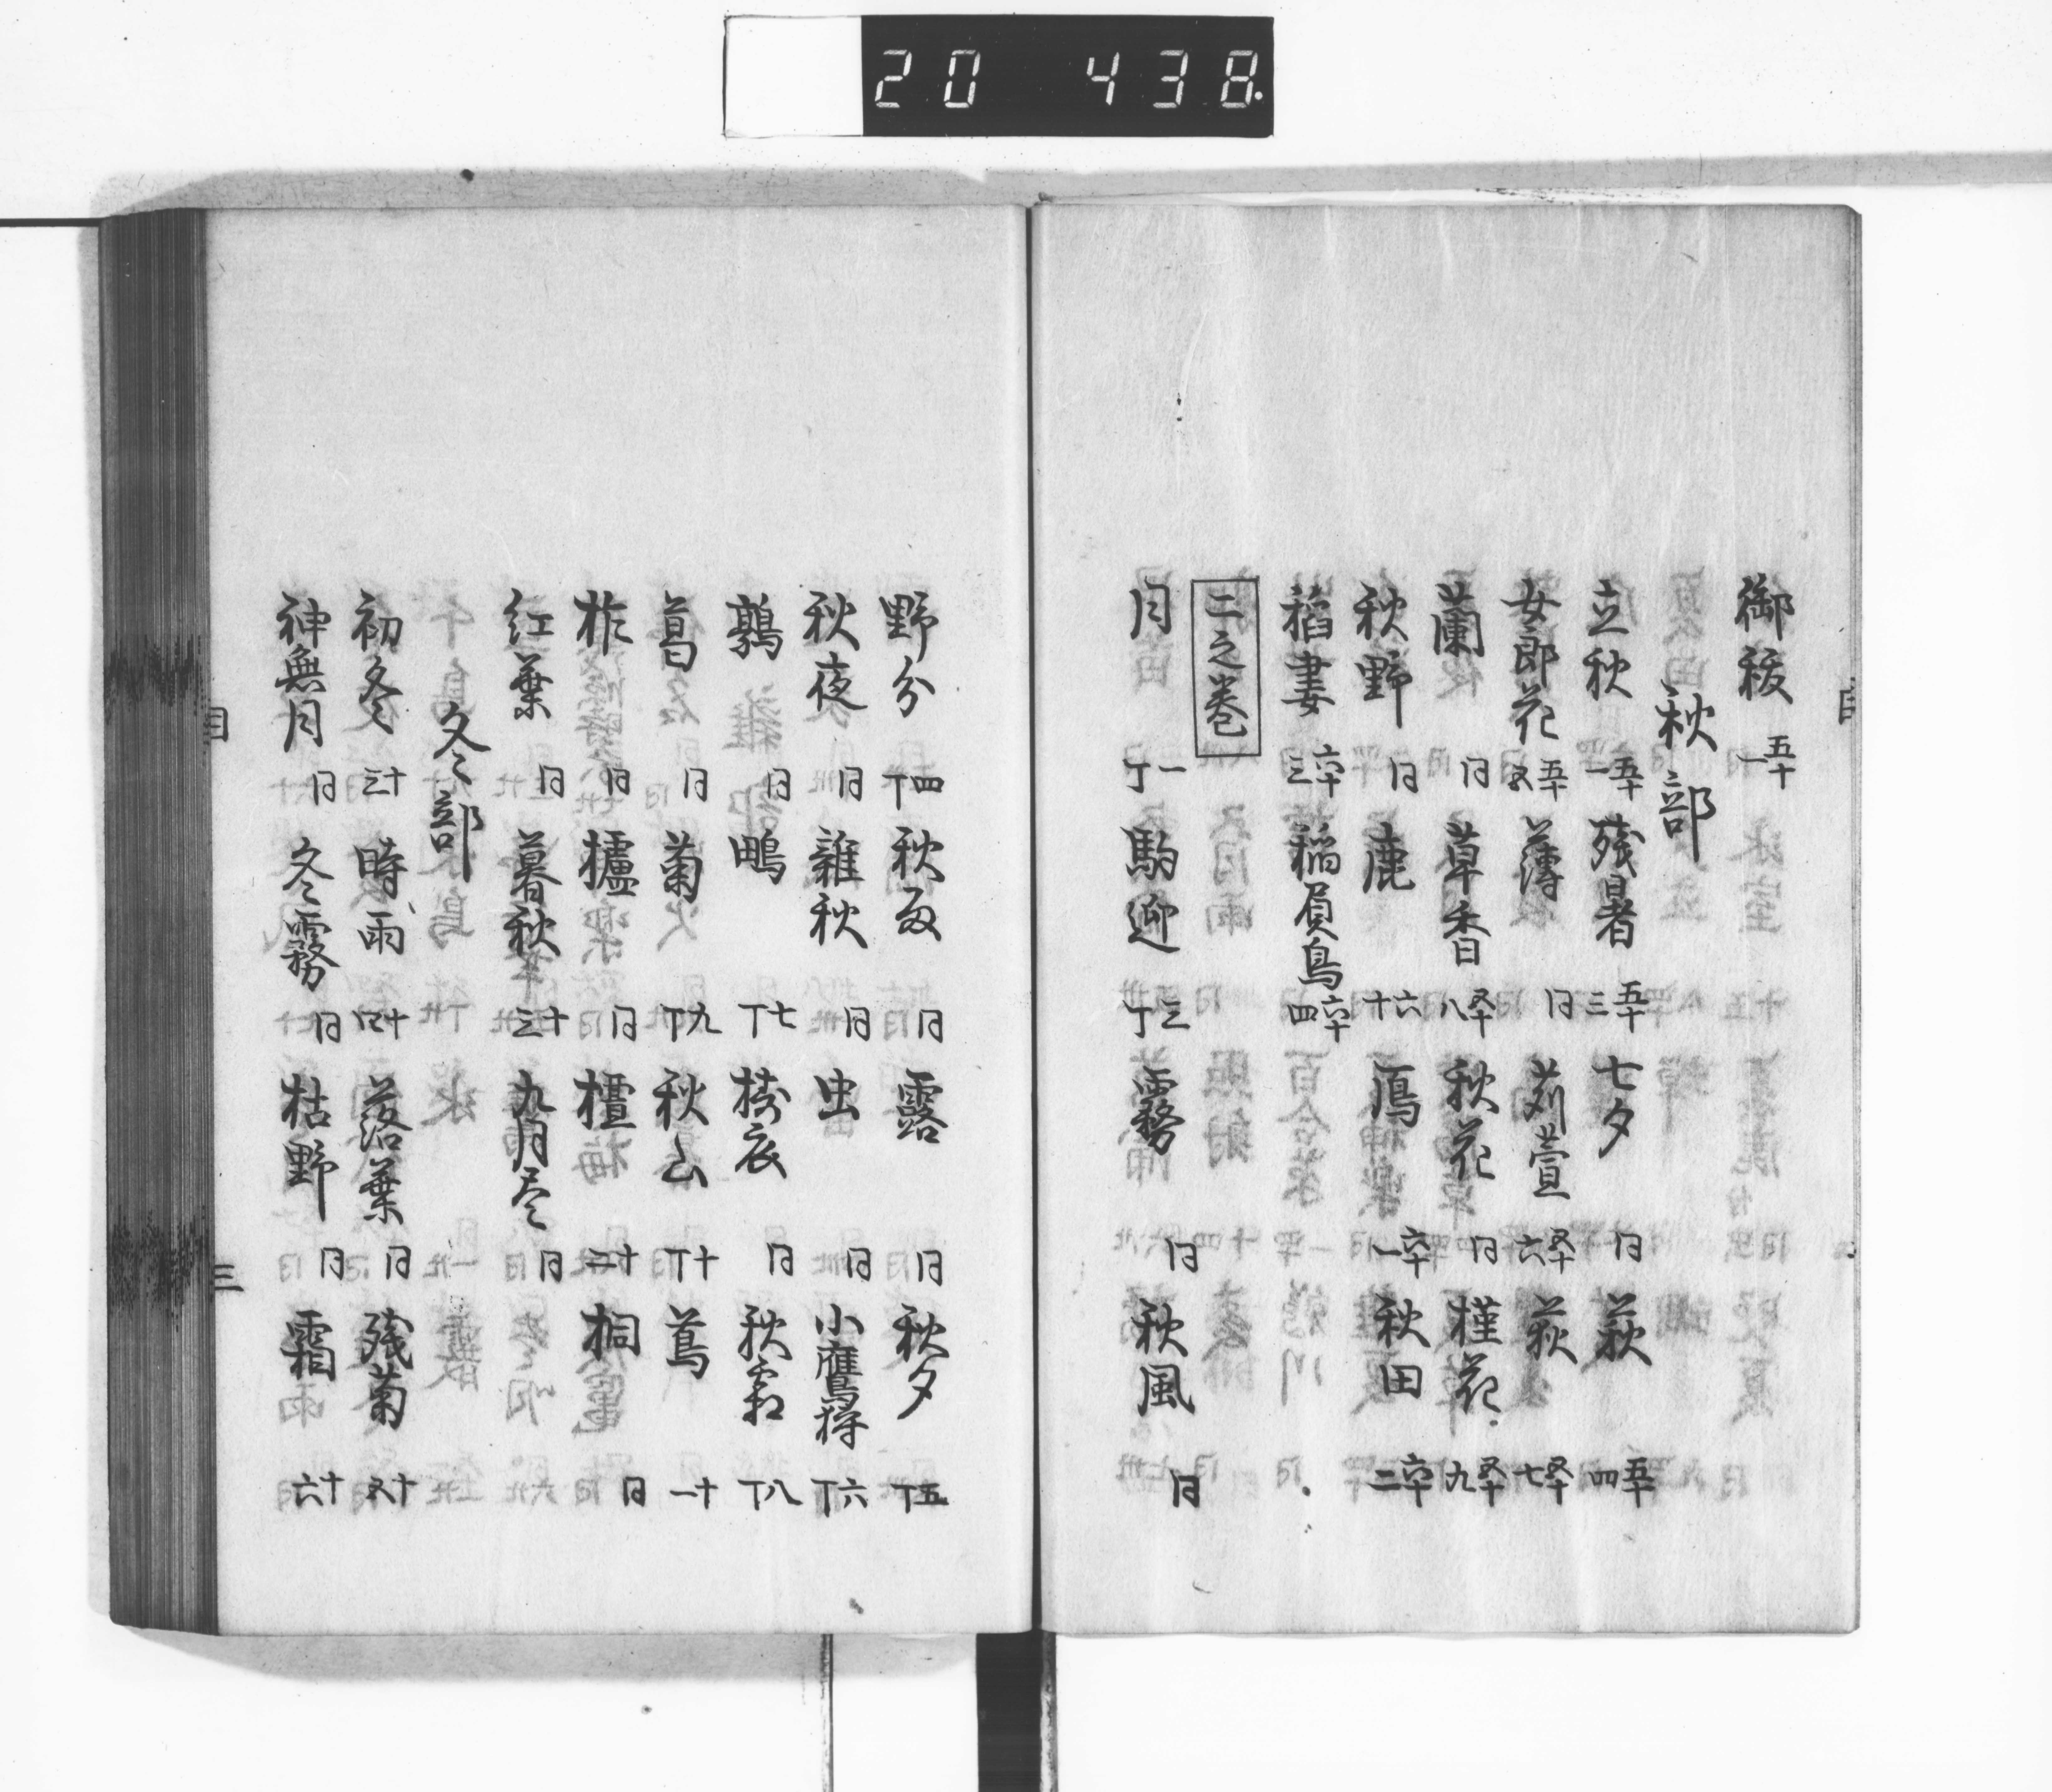 20 438
御祓 五十一
秋部
立秋 五十一 残暑 五十三 七夕 同 萩 五十四
女郎花 五十五 薄 同 苅萱 五十六 荻 五十七
蘭 同 草香 五十八 秋花 同 槿花 五十九
秋野 同 鹿 六十 鴈 六十一 秋田 六十二
稲妻 六十三 稲負鳥 六十四
二之巻
月 一丁 駒迎 三丁 霧 同 秋風 同
野分 四丁 秋雨 同 露 同 秋夕 五丁
秋夜 同 雑秋 同 虫 同 小鷹狩 六丁
鶉 同 鴫 七丁 擣衣 同 秋霜 八丁
葛 同 菊 九丁 秋山 十丁 蔦 十一
柞 同 櫨 同 檀 十二 桐 同
紅葉 同 暮秋 十三 九月尽 同
冬部
初冬 十三 時雨 十四 落葉 同 残菊 十五
神無月 同 冬霧 同 枯野 同 霜 十六
目 三